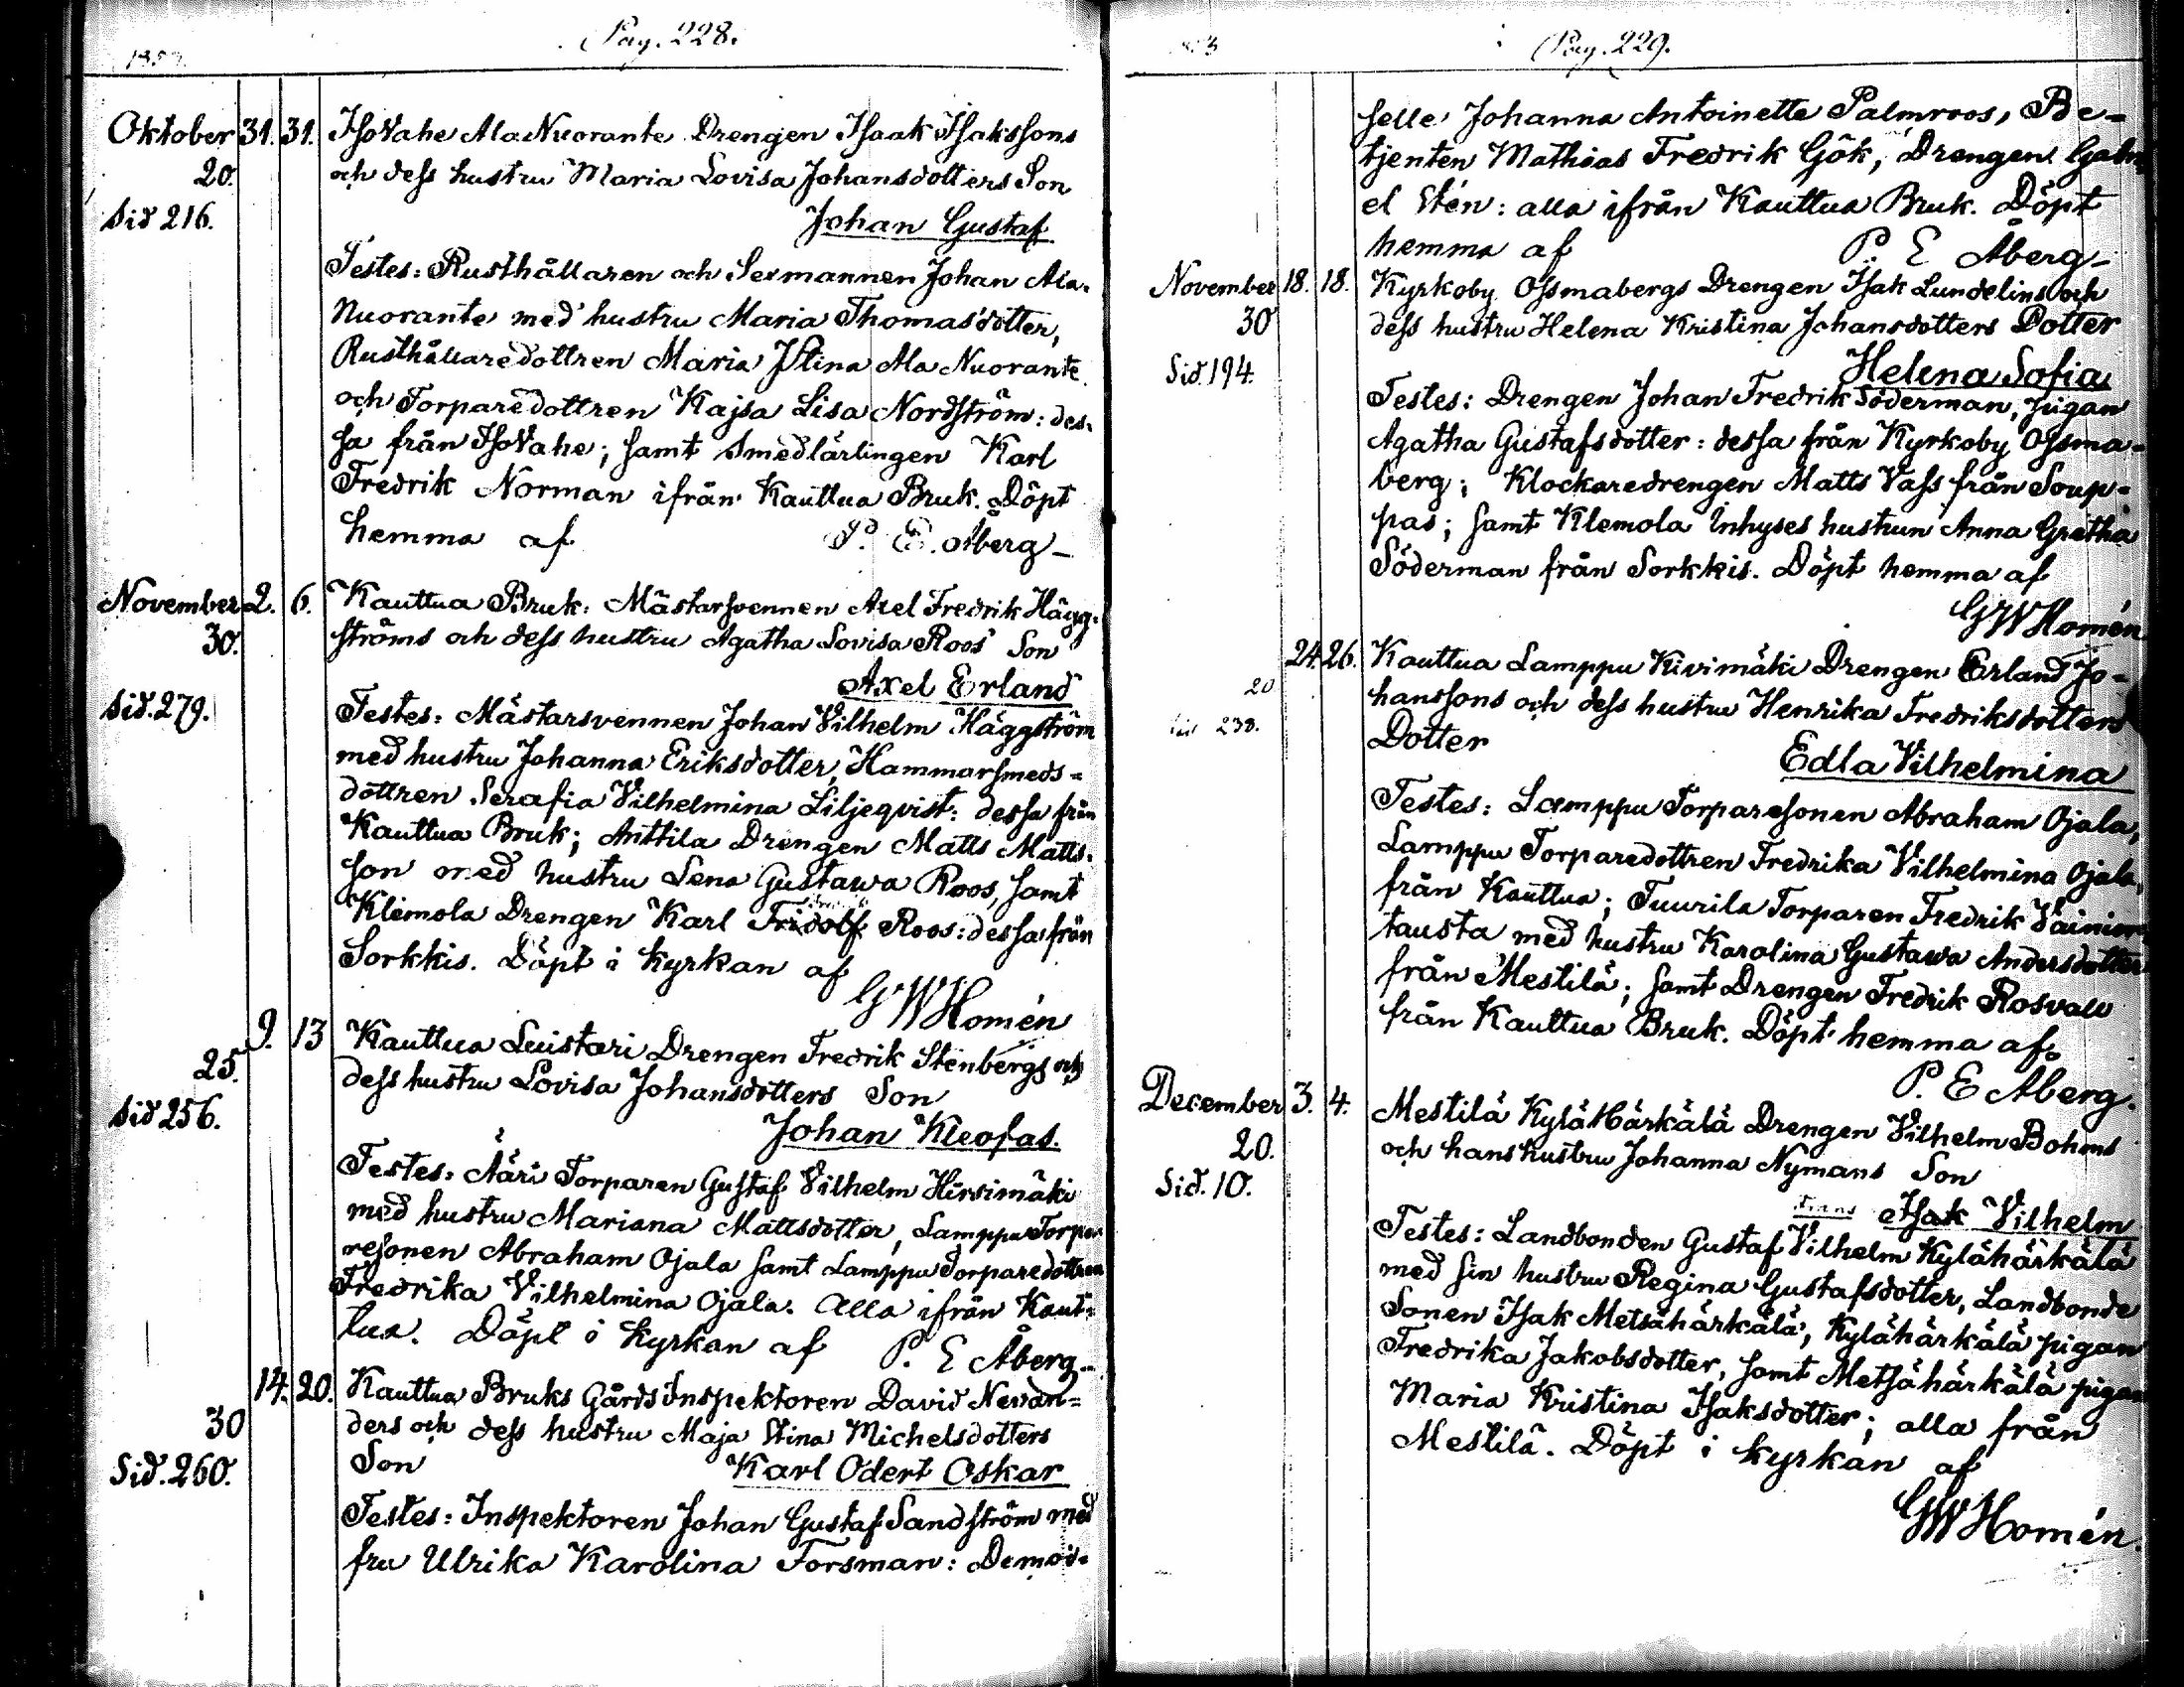 Pag. 228.
1853.
Oktober 31. 31. IsoVahe Ala Nuorante Drengen Isaak Isakssons
20. och dess hustru Maria Lovisa Johansdotters Son
Sid 216. Johan Gustaf
Testes: Rusthållaren och Sexmannen Johan Ala-
Nuorante med hustru Maria Thomasdotter,
Rusthållaredottren Maria Stina Ala Nuorante
och Torparedottren Kajsa Lisa Nordström: des-
sa från IsoVahe; samt Smedlärlingen Karl
Fredrik Norman ifrån Kauttua Bruk. Döpt
hemma af P. E. Åberg-
November 2. 6. Kauttua Bruk: Mästarsvennen Axel Fredrik Hägg-
30. ströms och dess hustru Agatha Lovisa Roos Son
Axel Erland
Sid. 279. Testes: Mästarsvennen Johan Vilhelm Häggström
med hustru Johanna Eriksdotter, Hammarsmeds-
dottren Serafia Vilhelmina Liljeqvist: dessa från
Kauttua Bruk; Anttila Drengen Matts Matts-
son med hustru Lena Gustawa Roos, samt
Klemola Drengen Karl Fridolf Roos: dessa från
Sorkkis. Döpt i kyrkan af
GWHomén
9. 13 Kauttua Luistari Drengen Fredrik Stenbergs och
25. dess hustru Lovisa Johansdotters Son
Sid 256. Johan Kleofas.
Testes: Ääri Torparen Gustaf Vilhelm Hirvimäki
med hustru Mariana Mattsdotter, Lamppu Torpa-
resonen Abraham Ojala samt Lamppu Torparedottren
Fredrika Vilhelmina Ojala. Alla ifrån Kaut-
tua. Döpt i kyrkan af P. E Åberg-
14. 20. Kauttua Bruks Gårds Inspektoren David Nevan-
30 ders och dess hustru Maja Stina Michelsdotters
Sid. 260. Son Karl Odert Oskar
Testes: Inspektoren Johan Gustaf Sandström med
fru Ulrika Karolina Forsman: Demoi-
Pag. 229.
selle Johanna Antoinette Palmroos, Be-
tjenten Mathias Fredrik Gök, Drengen Gabri
el Stén: alla ifrån Kauttua Bruk. Döpt
hemma af P. E Åberg-
November 18. 18. Kyrkoby Ossmabergs Drengen Isak Lundelins och
30 dess hustru Helena Kristina Johansdotters Dotter
Sid. 194. Helena Sofia
Testes: Drengen Johan Fredrik Söderman, pigan
Agatha Gustafsdotter: dessa från Kyrkoby Ossma-
berg; Klockaredrengen Matts Vass från Soup-
pas; samt Klemola Inhyses hustrun Anna Gretha
Söderman från Sorkkis. Döpt hemma af
GWHomén
24. 26. Kauttua Lamppu Kivimäki Drengen Erland Jo-
20 hanssons och dess hustru Henrika Fredriksdotters
Sid 238. Dotter Edla Vilhelmina
Testes: Lamppu Torparesonen Abraham Ojala,
Lamppu Torparedottren Fredrika Vilhelmina Ojala,
från Kauttua; Tuurila Torparen Fredrik Vainion
tausta med hustru Karolina Gustawa Andersdotter
från Mestilä; samt Drengen Fredrik Rosvall
från Kauttua Bruk. Döpt hemma af
P. E Åberg.
December 3. 4. Mestilä KyläHärkälä Drengen Vilhelm Bohms
20. och hans hustru Johanna Nymans Son
Sid. 10. Frans Isak Vilhelm
Testes: Landbonden Gustaf Vilhelm Kylähärkälä
med sin hustru Regina Gustafsdotter, Landbonde
Sonen Isak Metsähärkälä, Kylähärkälä pigan
Fredrika Jakobsdotter, samt Metsähärkälä pigan
Maria Kristina Isaksdotter; alla från
Mestilä. Döpt i kyrkan af
GWHomén.